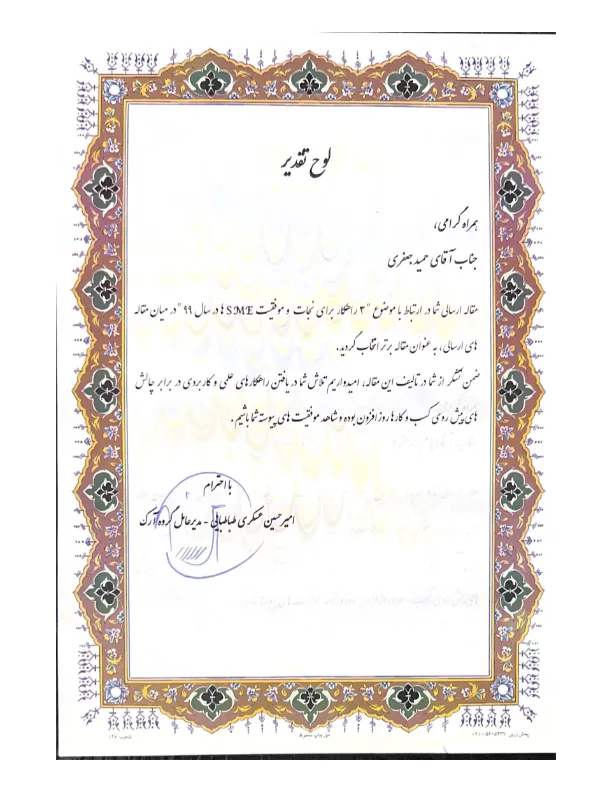 لوح تقدیر
همراه گرامی،
جناب آقای حمید جعفری
مقاله ارسالی شما در ارتباط با موضوع "۳ راهکار برای نجات و موفقیت SME ها در سال ۹۹" در میان مقاله
های ارسالی، به عنوان مقاله برتر انتخاب گردید.
ضمن تشکر از شما در تالیف این مقاله، امیدواریم تلاش شما در یافتن راهکارهای علمی و کاربردی در برابر چالش
های پیش روی کسب و کارها روز افزون بوده و شاهد موفقیت های پیوسته شما باشیم.
با احترام
امیرحسین عسکری طباطبایی - مدیرعامل گروه آرک